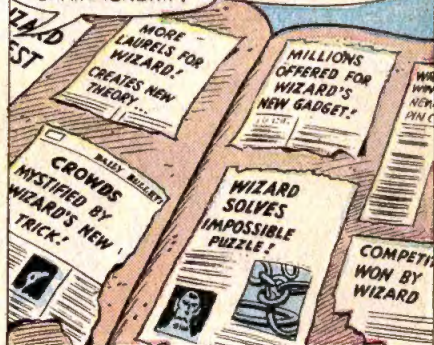 MORE
LAURELS FOR
WIZARD!
CREATES NEW
THEORY...
MILLIONS
OFFERED FOR
WIZARD'S
NEW GADGET!
DAILY
CROWDS
MYSTIFIED BY
WIZARD'S NEW
TRICK!
WIZARD
SOLVES
IMPOSSIBLE
PUZZLE!
COMPETI
WON BY
WIZARD